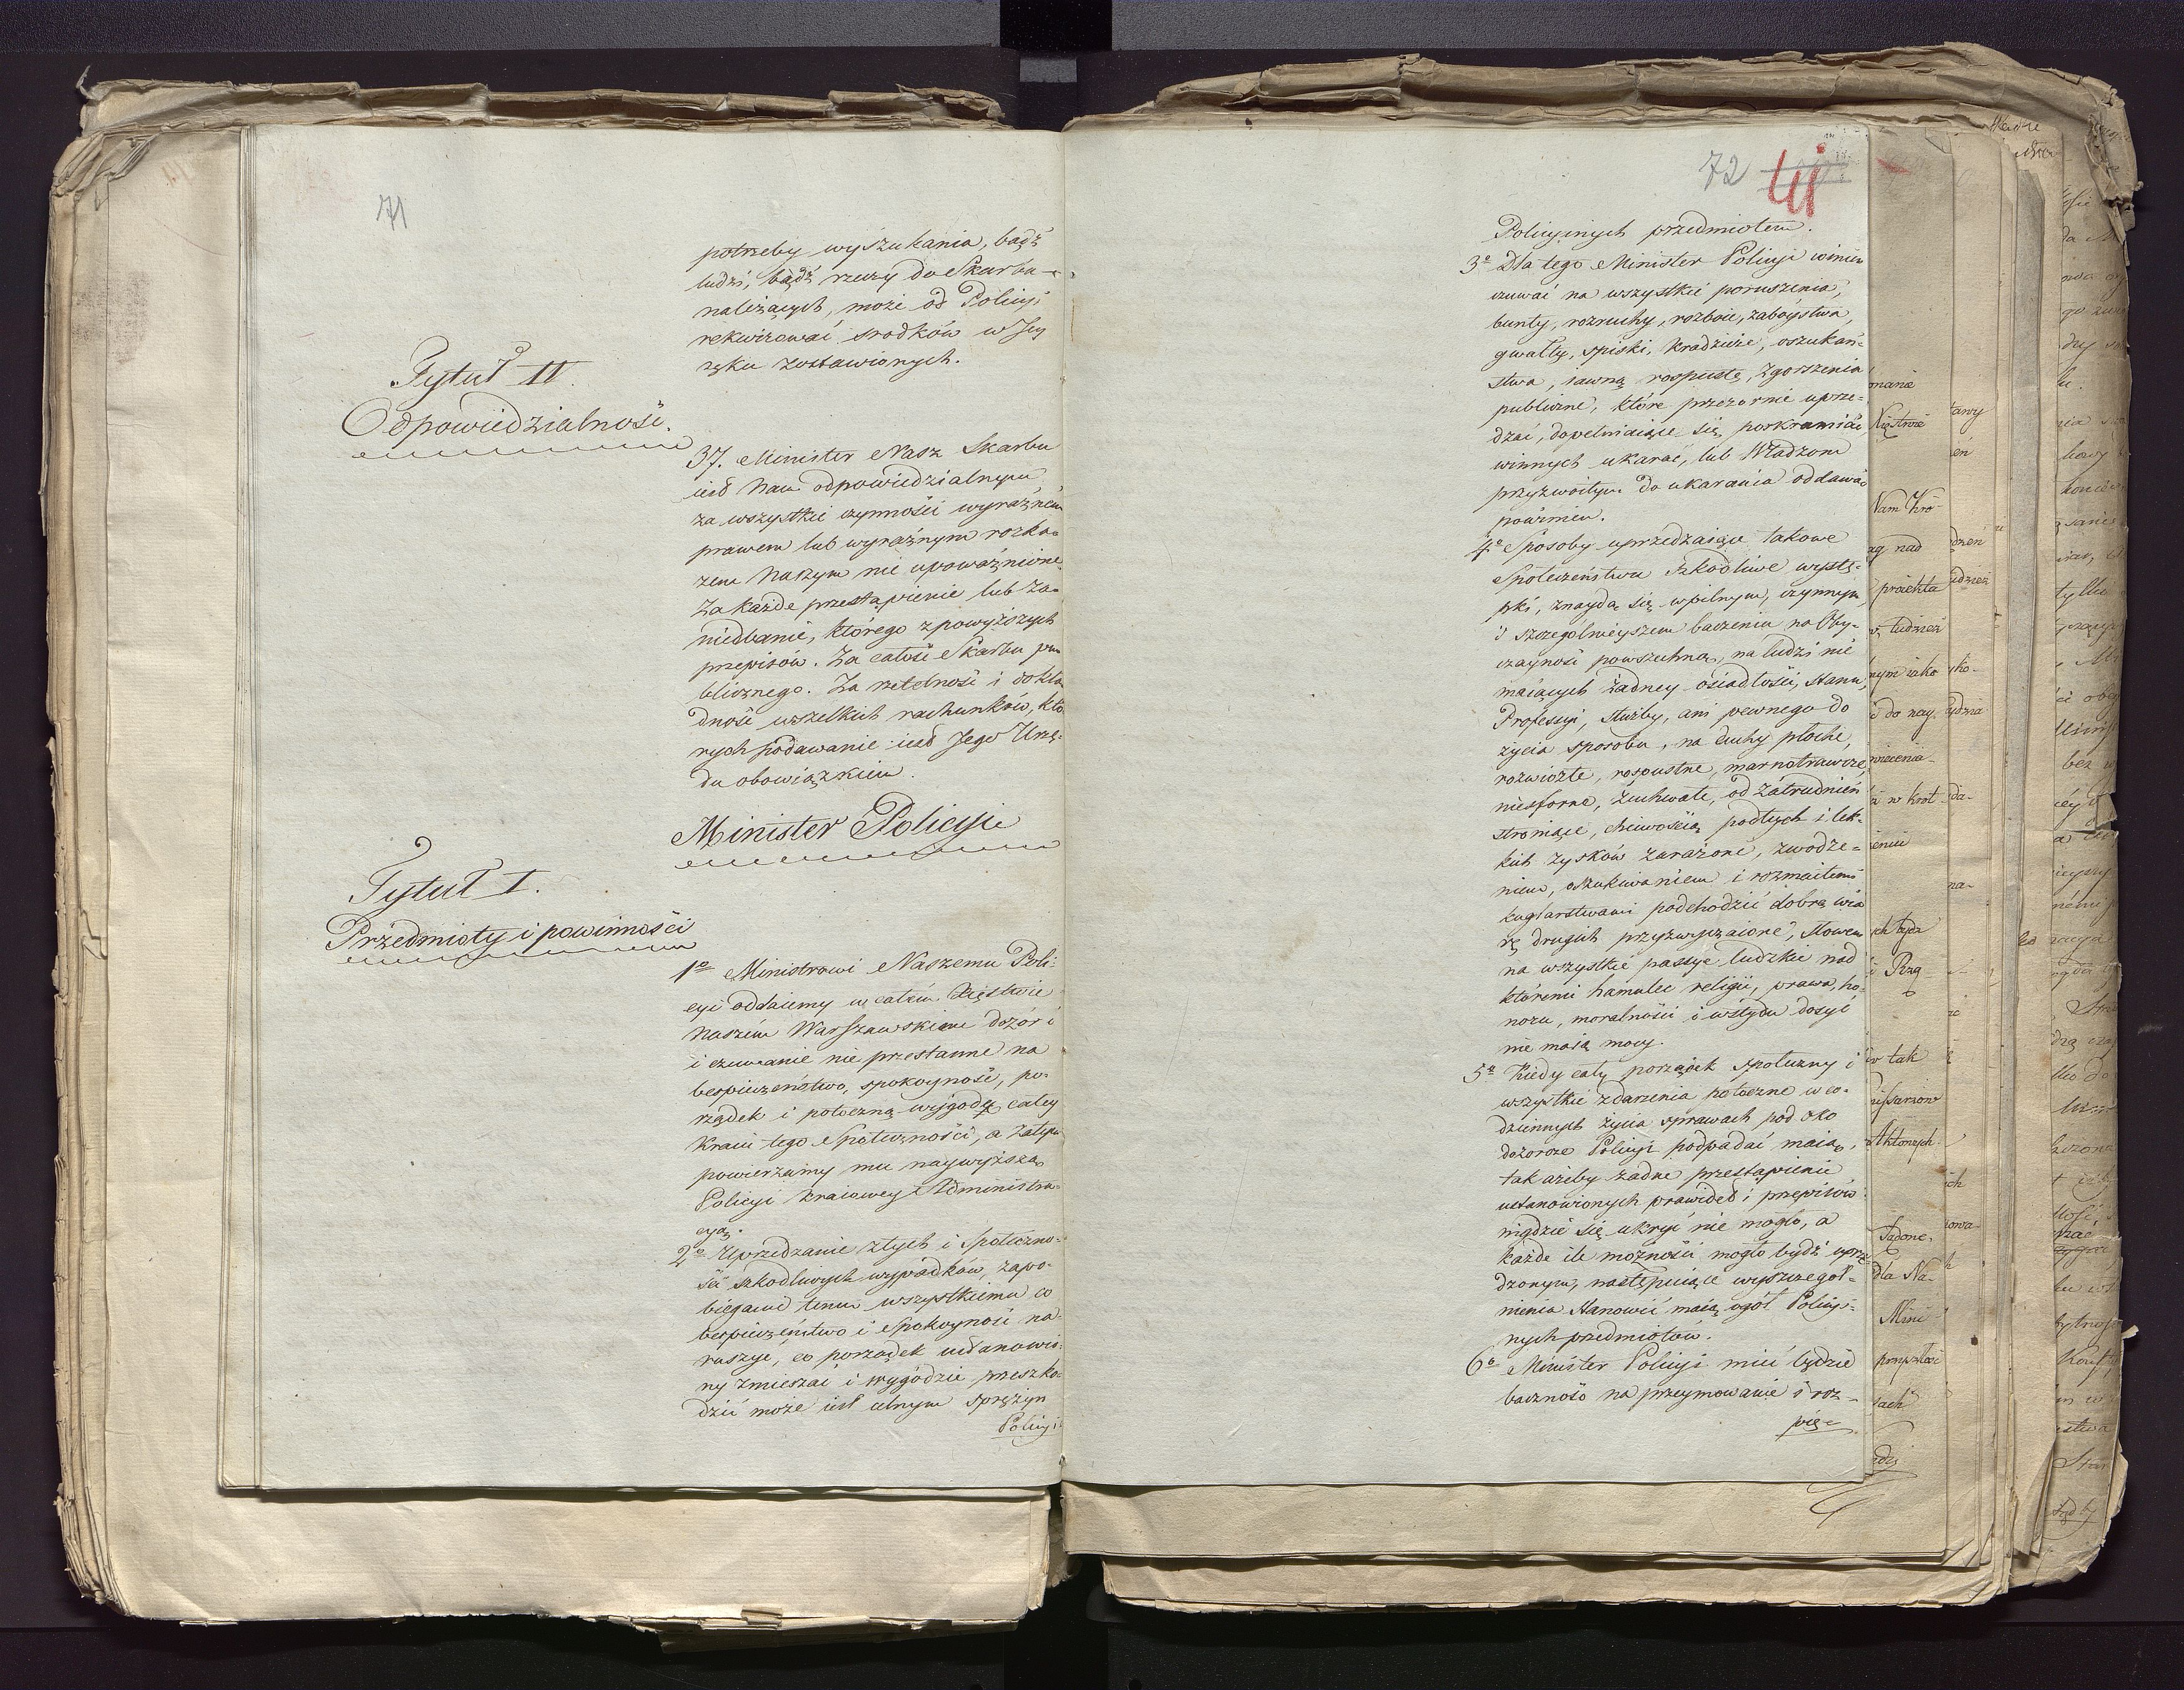 71
potrzeby wyszukania, bądź
ludzi, bądź rzeczy do Skarbu
należących, może od Policyi
rekwirować srodków w Jey
ręku zostawionych.
Tytuł II.
Odpowiedzialność.
37. Minister Nasz Skarbu
iest Nam odpowiedzialnym
za wszystkie czynności wyraźnem
prawem lub wyraźnym rozka-
zem Naszym nie upoważnione
Za każde przestąpienie lub za-
niedbanie, którego z powyższych
przepisów. Za całość Skarbu pu
blicznego. Za rzetelność i dokła
dność wszelkich rachunków, któ
rych podawanie iest Jego Urzę-
du obowiązkiem.
Minister Policyi
Tytuł I.
Przedmioty i powinności
1o Ministrowi Naszemu Poli-
cyi oddaiemy w całém Xięstwie
Naszém Warszawskiem dozór i
i czuwanie nie przestanne na
bespieczeństwo, spokoyność, po-
rządek i potoczną wygodę całey
kraiu tego Społeczności, a zatym
powierzamy mu naywyższą
Policyi kraiowey Administra-
cyą.
2o Uprzedzanie złych i Społeczno-
ści szkodliwych wypadków, zapo-
bieganie temu wszystkiemu co
bespieczeństwo i Spokoyność na-
ruszyć, co porządek ustanowio-
ny zmieszać i wygodzie przeszko-
dzić może iest celnym sprężyn
Policyi-
72
Policyinych przedmiotem.
3o Dla tego Minister Policyi winien
czuwać na wszystkie poruszenia,
bunty, rozruchy, rozboie, zabóystwa,
gwałty, spiski, kradzieże, oszukań-
stwa, iawną rospustę, zgorszenia
publiczne, które przezornie uprze-
dzać, dopełniaiące się poskramiać,
winnych ukarać, lub Władzom
przyzwoitym do ukarania oddawać
powinien.
4o Sposoby uprzedzaiące takowe
Społeczeństwu szkodliwe wystę-
pki, znaydą się w pilnym, czynnym,
i szczególnieyszem baczeniu na Oby-
czayność powszechną, na ludzi nie
maiących żadney osiadłości, stanu,
Professyi, służby, ani pewnego do
życia sposobu, na duchy płoche,
rozwiozłe, rospustne, marnotrawcze,
niesforne, zuchwałe, od zatrudnień
stroniące, chciwością podłych i lek-
kich zysków zarażone, zwodze-
niem, oszukiwaniem i rozmaitemi
kuglarstwami podchodzić dobrą wia
rę drugich przyzwyczaione, słowem
na wszystkie passye ludzkie nad
któremi hamulec religii, prawa, ho-
noru, moralności i wstydu dosyć
nie maią mocy.
5o Kiedy cały porządek społeczny i
wszystkie zdarzenia potoczne w co-
dziennych życia sprawach pod oko
dozorcze Policyi podpadać maią,
tak ażeby żadne przestąpienie
ustanowionych prawideł i przepisów
nigdzie się ukryć nie mogło, a
każde ile możności mogło bydź uprze
dzonym, następuiące wyszczegól-
nienia stanowić maią ogół Policyi-
nych przedmiotów.
6o Minister Policyi mieć będzie
baczność na przeymowanie i roz-
pię-